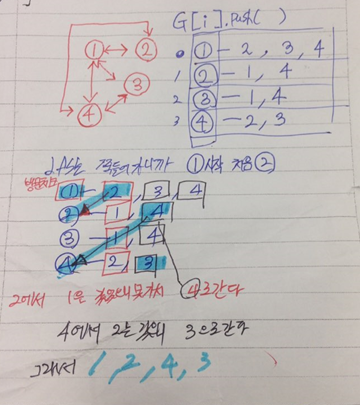 G[i].push( )
① ②
③
④
0 ① - 2, 3, 4
1 ② - 1, 4
2 ③ - 1, 4
3 ④ - 2, 3
DFS는 ①시작 처음 ②
방문체크
① - 2, 3, 4
② - 1, 4
③ - 1, 4
④ - 2, 3
2에서 1은 ④로간다
4에서 2는 3으로간다
그래서 1, 2, 4, 3